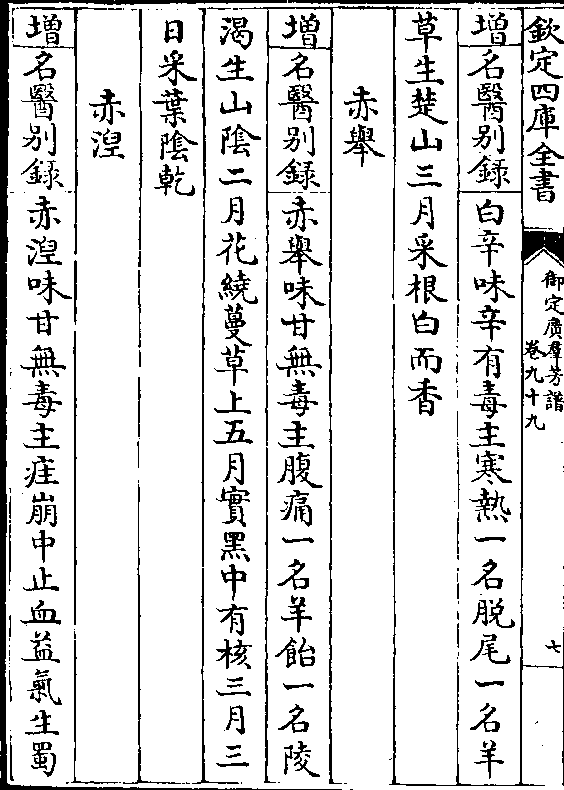 欽定四庫全書
御定廣羣芳譜
卷九十九
七
增名醫别錄白辛味辛有毒主寒熱一名脱尾一名羊
草生楚山三月采根白而香
赤舉
增名醫别錄赤舉味甘無毒主腹痛一名羊飴一名陵
渴生山陰二月花繞蔓草上五月實黑中有核三月三
日采葉陰乾
赤涅
增名醫别錄赤涅味甘無毒主疰崩中止血益氣生蜀